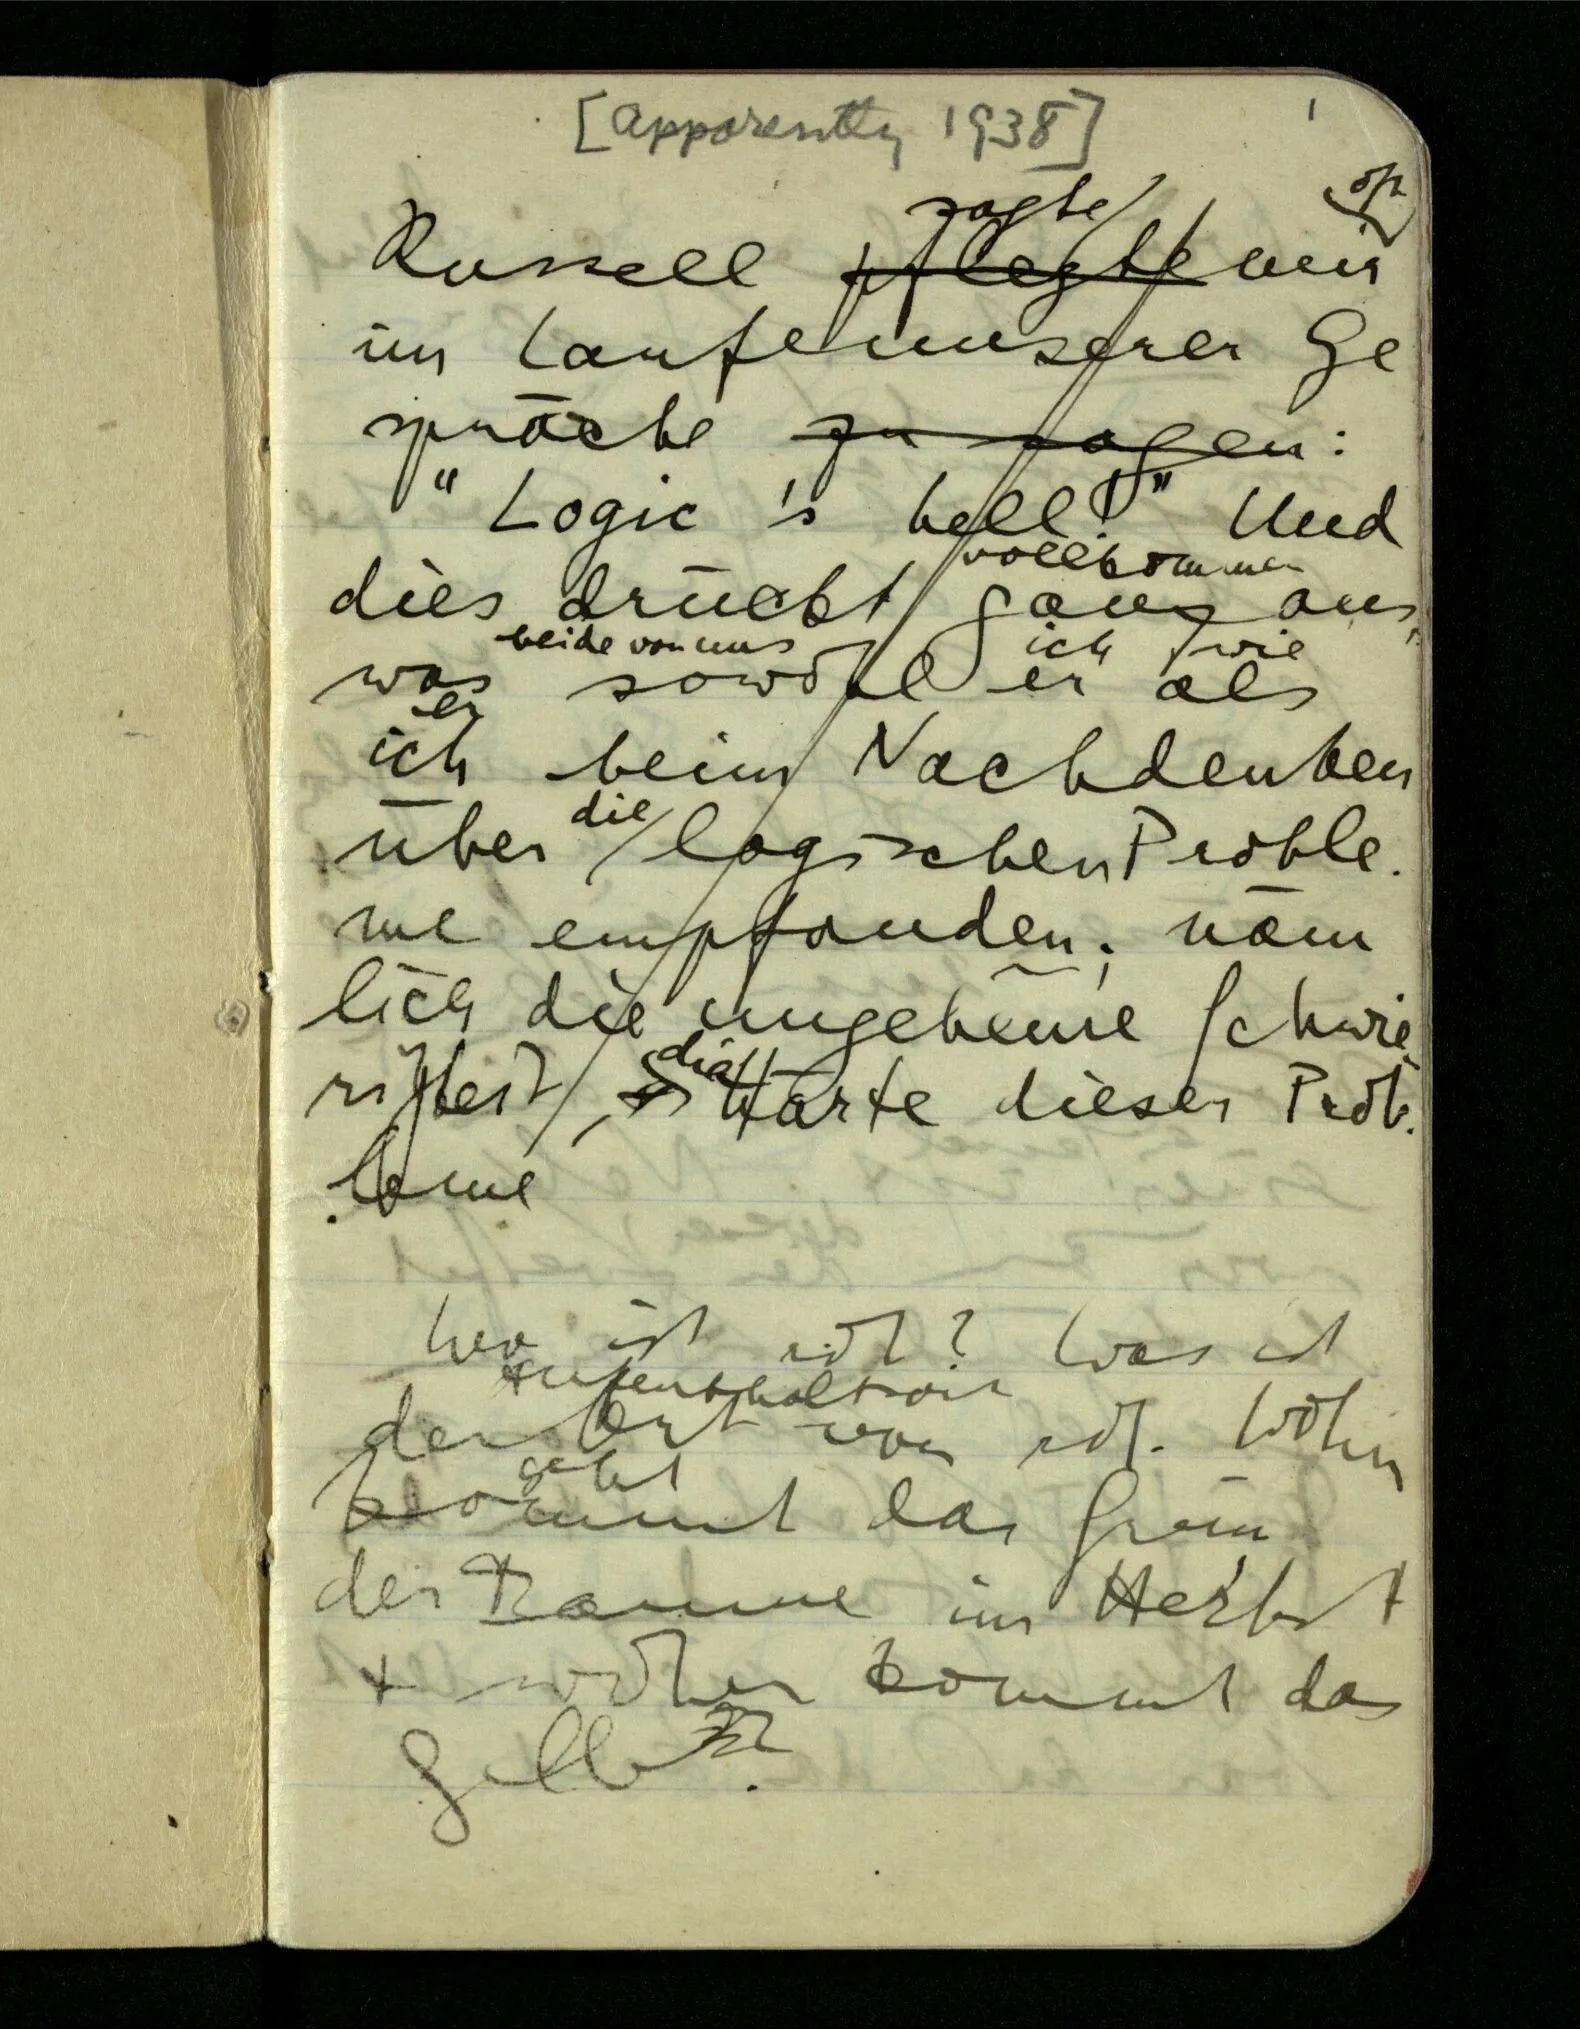 [apparently 1938] 1
sagte/ oft
Russell pflegte mir
im Laufe unserer Ge
spräche zu sagen:
"Logic's hell!" Und
vollkommen
dies drückt ganz aus,
beide von uns ich wie
was sowohl er als
er
ich beim Nachdenken
die
über / logischen Proble-
me empfanden; näm
lich die ungeheure Schwie
die
rigkeit, Härte dieser Prob-
leme
Wo ist rot? Was ist
Aufenthaltsort
der Ort von rot. Wohin
geht
kommt das Grün
der Bäume im Herbst
+ woher kommt das
Gelb?